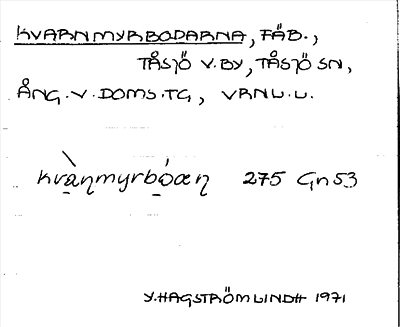 KVARNMYRBODARNA, FÄB.,
TÅSJÖ V.BY, TÅSJÖ SN,
ÅNG.V.DOMS.TG, VRNL.L.
kvàn̥myrbóæn̥ 275 Gn 53
Y.HAGSTRÖM LINDH 1971